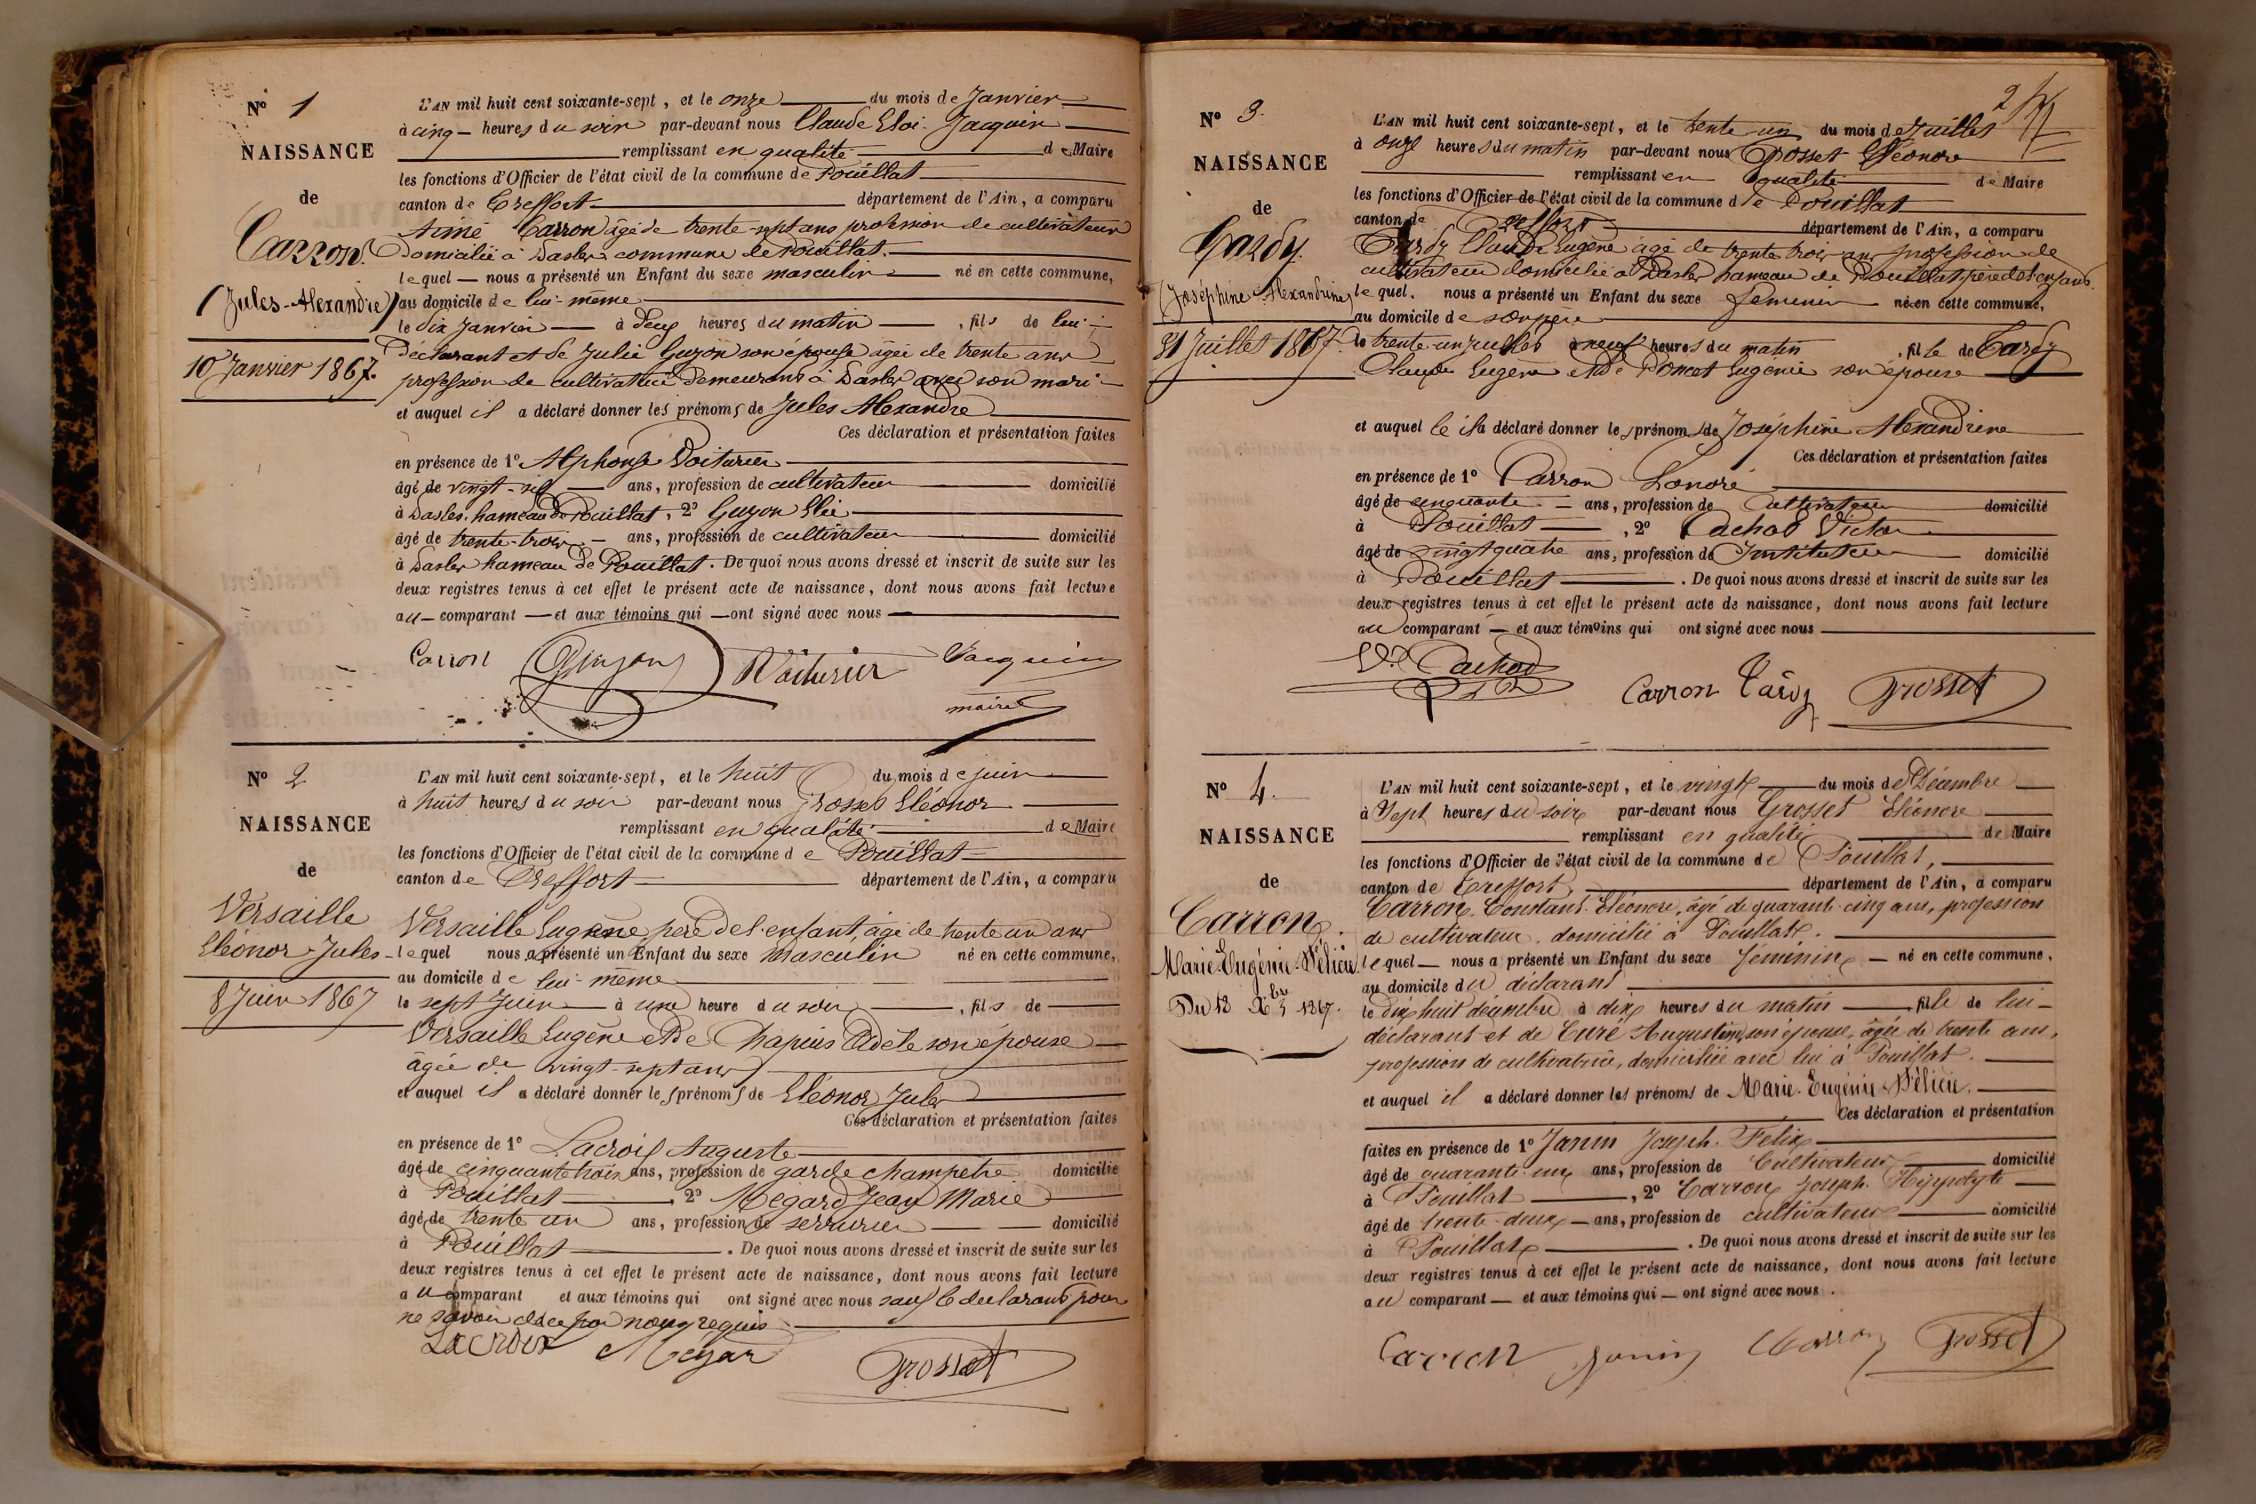 N° 1
NAISSANCE
de
Carron.
(Jules-Alexandre)
10 Janvier 1867.
L'AN mil huit cent soixante-sept, et le onze du mois de Janvier
à cinq heures du soir par-devant nous Claude Eloi Jacquin
remplissant en qualité de Maire
les fonctions d'Officier de l'état civil de la commune de Pouillat
canton de Treffort département de l'Ain, a comparu
Aimé Carron âgé de trente-sept ans profession de cultivateur
Domicilié à Dasles commune de Pouillat.
lequel nous a présenté un Enfant du sexe masculin né en cette commune,
au domicile de lui-même
le dix Janvier à deux heures du matin, fils de lui-
Déclarant et de Julie Guyon son épouse âgée de trente ans
profession de cultivatrice demeurant à Dasles avec son mari
et auquel il a déclaré donner les prénoms de Jules Alexandre
Ces déclaration et présentation faites
en présence de 1° Alphonse Voiturier
âgé de vingt-six ans, profession de cultivateur domicilié
à Dasles, hameau de Pouillat, 2° Guyon Elie
âgé de trente-trois ans, profession de cultivateur domicilié
à Dasles hameau de Pouillat. De quoi nous avons dressé et inscrit de suite sur les
deux registres tenus à cet effet le présent acte de naissance, dont nous avons fait lecture
au comparant et aux témoins qui ont signé avec nous
Carron Guyon Voiturier Jacquin
maire
N° 2
NAISSANCE
de
Versaille
Eléonor-Jules
8 Juin 1867
L'AN mil huit cent soixante-sept, et le huit du mois de juin
à huit heures du soir par-devant nous Grosset Eléonor
remplissant en qualité de Maire
les fonctions d'Officier de l'état civil de la commune de Pouillat
canton de Treffort département de l'Ain, a comparu
Versaille Eugène père de l'enfant âgé de trente un ans
lequel nous a présenté un Enfant du sexe Masculin né en cette commune,
au domicile de lui-même
le sept Juin à une heure du soir, fils de
Versaille Eugène et de Chapuis Adèle son épouse
âgée de vingt-sept ans
et auquel il a déclaré donner les prénoms de Eléonor Jules
Ces déclaration et présentation faites
en présence de 1° Lacroix Auguste
âgé de cinquante trois ans, profession de garde champêtre domicilié
à Pouillat, 2° Mégard Jean Marie
âgé de trente un ans, profession de serrurier domicilié
à Pouillat. De quoi nous avons dressé et inscrit de suite sur les
deux registres tenus à cet effet le présent acte de naissance, dont nous avons fait lecture
au comparant et aux témoins qui ont signé avec nous sauf le déclarant pour
ne savoir de ce par nous requis
Lacroix Mégard Grosset
2
N° 3.
NAISSANCE
de
Tardy.
(Joséphine-Alexandrine)
31 Juillet 1867.
L'AN mil huit cent soixante-sept, et le trente-un du mois de Juillet
à onze heures du matin par-devant nous Grosset Eléonore
remplissant en qualité de Maire
les fonctions d'Officier de l'état civil de la commune de Pouillat
canton de Treffort département de l'Ain, a comparu
Tardy Claude Eugène âgé de trente trois ans profession de
cultivateur domicilié à Dasles hameau de Pouillat père de l'enfant
lequel. nous a présenté un Enfant du sexe féminin né en cette commune,
au domicile de son père
le trente-un juillet à neuf heures du matin, fille de Tardy
Claude Eugène et de Poncet Eugénie son épouse
et auquel le il a déclaré donner les prénoms de Joséphine Alexandrine
Ces déclaration et présentation faites
en présence de 1° Carron Honoré
âgé de cinquante ans, profession de Cultivateur domicilié
à Pouillat, 2° Cachod Victor
âgé de vingt quatre ans, profession de Instituteur domicilié
à Pouillat. De quoi nous avons dressé et inscrit de suite sur les
deux registres tenus à cet effet le présent acte de naissance, dont nous avons fait lecture
au comparant et aux témoins qui ont signé avec nous
Vr Cachod
Carron Tardy Grosset
N° 4.
NAISSANCE
de
Carron.
Marie-Eugénie-Félicie.
Du 18 Xbre 1867.
L'AN mil huit cent soixante-sept, et le vingt du mois de Décembre
à Sept heures du soir par-devant nous Grosset Eléonore
remplissant en qualité de Maire
les fonctions d'Officier de l'état civil de la commune de Pouillat,
canton de Treffort, département de l'Ain, a comparu
Carron, Constant-Eléonore, âgé de quarante-cinq ans, profession
de cultivateur, domicilié à Pouillat.
lequel nous a présenté un Enfant du sexe féminin né en cette commune,
au domicile du déclarant
le dix huit décembre à dix heures du matin fille de lui-
déclarant et de Curé Augustine, son épouse, âgée de trente ans,
profession de cultivatrice, domiciliée avec lui à Pouillat.
et auquel il a déclaré donner les prénoms de Marie-Eugénie-Félicie.
Ces déclaration et présentation
faites en présence de 1° Janin Joseph-Félix
âgé de quarante-un ans, profession de Cultivateur domicilié
à Pouillat, 2° Carron Joseph-Hippolyte
âgé de trente-deux ans, profession de cultivateur domicilié
à Pouillat. De quoi nous avons dressé et inscrit de suite sur les
deux registres tenus à cet effet le présent acte de naissance, dont nous avons fait lecture
au comparant et aux témoins qui ont signé avec nous.
Carron Janin Carron Grosset